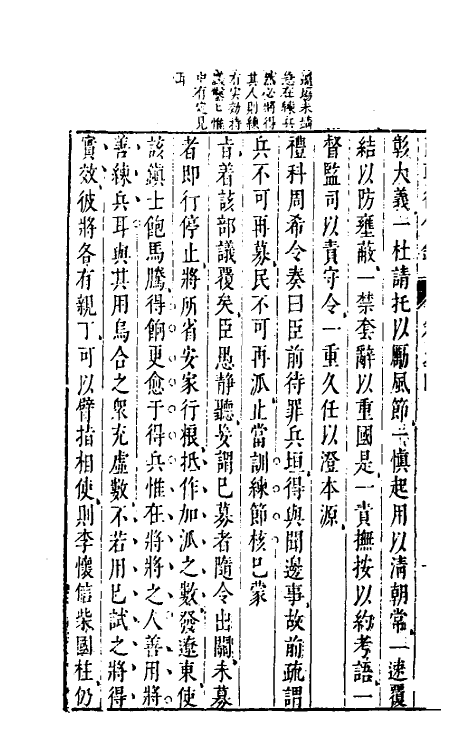 邊烽未靖
急在練兵
然必將得
其人則練
有实効持
議鑿鑿惟
中有定見
耳
彰大義一杜請托以勵風節一愼起用以清朝常一速覆
結以防壅蔽一禁套辭以重國是一責撫按以約考語一
督監司以責守令一重久任以澄本源
禮科周希令奏曰臣前待罪兵垣得與聞邊事故前疏謂
兵不可再募民不可再派止當訓練節核已蒙
旨着該部議覆矣臣愚静聽妄謂已募者隨令出關未募
者即行停止將所省安家行粮抵作加派之數發遼東使
該鎮士飽馬騰得餉更愈于得兵惟在將將之人善用將
善練兵耳與其用烏合之衆充虛數不若用已試之將得
實效彼將各有親丁可以臂指相使則李懷信柴國柱仍